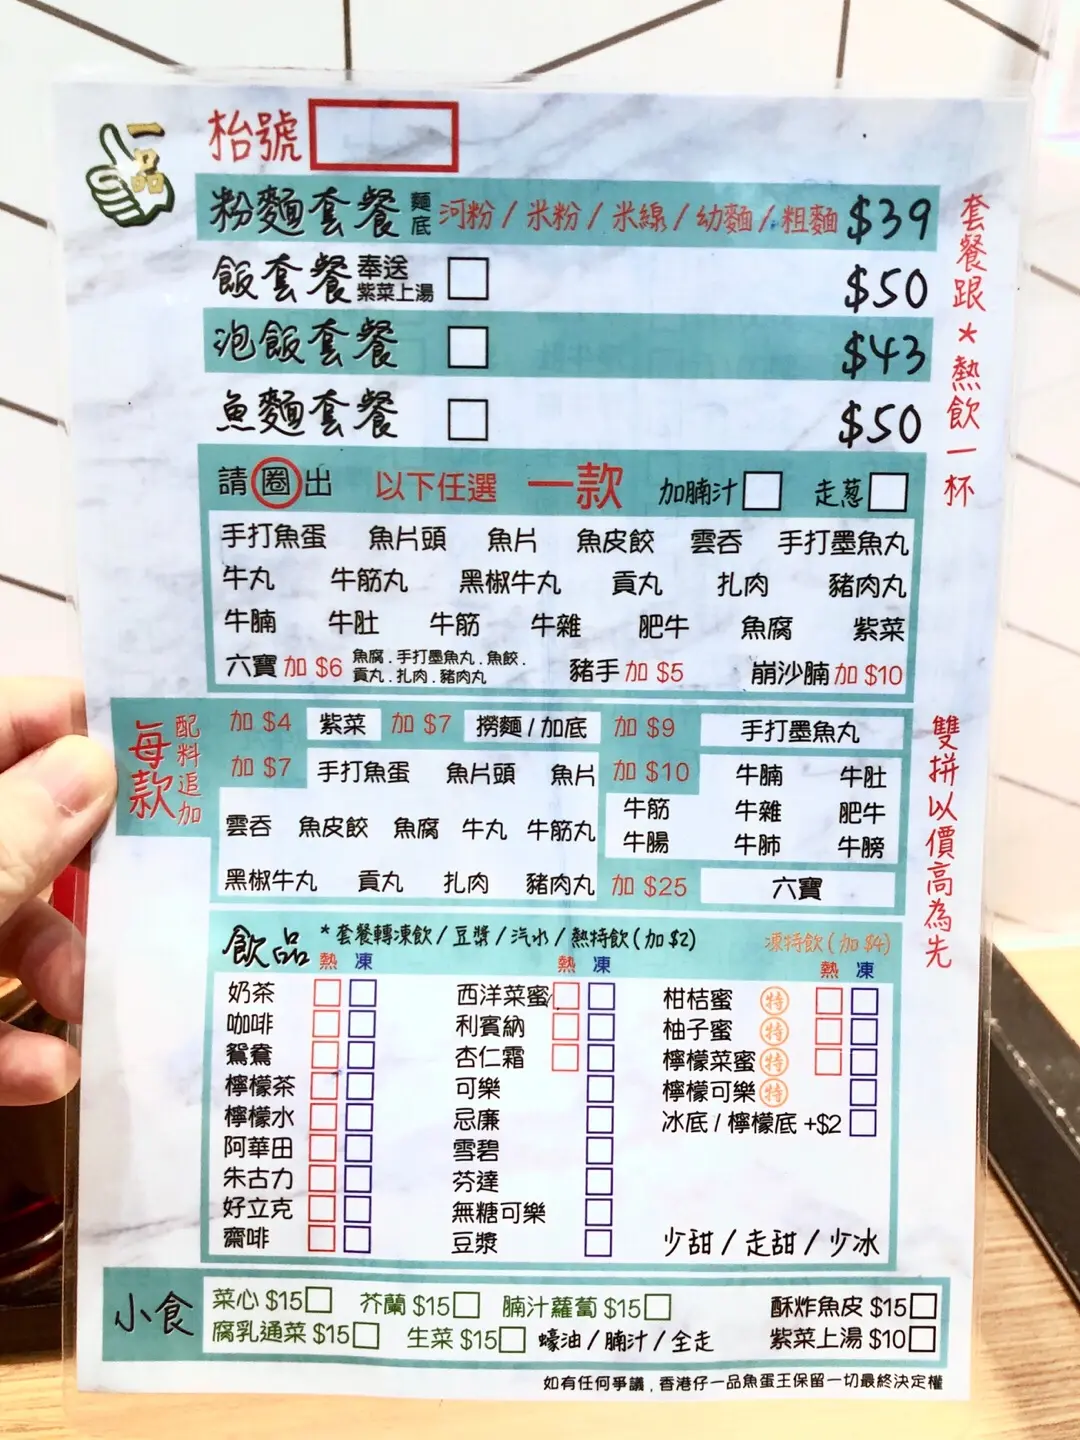 一品
枱號
粉麵套餐 麵底 河粉 / 米粉 / 米線 / 幼麵 / 粗麵 $39
飯套餐 奉送紫菜上湯 $50
泡飯套餐 $43
魚麵套餐 $50
套餐跟*熱飲一杯
請圈出 以下任選 一款 加腩汁 走葱
手打魚蛋 魚片頭 魚片 魚皮餃 雲吞 手打墨魚丸
牛丸 牛筋丸 黑椒牛丸 貢丸 扎肉 豬肉丸
牛腩 牛肚 牛筋 牛雜 肥牛 魚腐 紫菜
六寶 加 $6 魚腐.手打墨魚丸.魚餃.
貢丸.扎肉.豬肉丸
豬手 加 $5 崩沙腩 加 $10
每款 配料追加
加 $4 紫菜 加 $7 撈麵 / 加底 加 $9 手打墨魚丸
加 $7 手打魚蛋 魚片頭 魚片
雲吞 魚皮餃 魚腐 牛丸 牛筋丸
黑椒牛丸 貢丸 扎肉 豬肉丸
加 $10 牛腩 牛肚
牛筋 牛雜 肥牛
牛腸 牛肺 牛膀
加 $25 六寶
雙拼以價高為先
飲品 *套餐轉凍飲 / 豆漿 / 汽水 / 熱特飲 (加 $2) 凍特飲 (加 $4)
熱 凍 熱 凍 熱 凍
奶茶 西洋菜蜜 柑桔蜜 特
咖啡 利賓納 柚子蜜 特
鴛鴦 杏仁霜 檸檬菜蜜 特
檸檬茶 可樂 檸檬可樂 特
檸檬水 忌廉 冰底 / 檸檬底 +$2
阿華田 雪碧
朱古力 芬達
好立克 無糖可樂
齋啡 豆漿 少甜 / 走甜 / 少冰
小食
菜心 $15 芥蘭 $15 腩汁蘿蔔 $15 酥炸魚皮 $15
腐乳通菜 $15 生菜 $15 蠔油 / 腩汁 / 全走 紫菜上湯 $10
如有任何爭議, 香港仔一品魚蛋王保留一切最終決定權